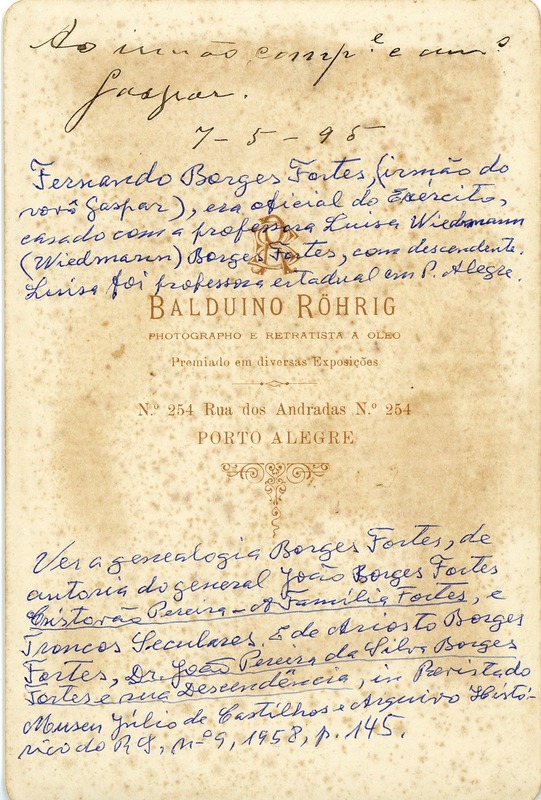 Ao irmão, comp.e e am.o
Gaspar.
7-5-95
Fernando Borges Fortes, (irmão do
vovô Gaspar), era oficial do Exército,
casado com a professora Luisa Wiedmann
(Wiedmann) Borges Fortes, com descendente.
Luisa foi professora estadual em P. Alegre.
BR
BALDUINO RÖHRIG
PHOTOGRAPHO E RETRATISTA A OLEO
Premiado em diversas Exposições
N.º 254 Rua dos Andradas N.º 254
PORTO ALEGRE
Ver a genealogia Borges Fortes, de
autoria do general João Borges Fortes
Cristovão Pereira - A Família Fortes, e
Troncos Seculares. E de Ariosto Borges
Fortes, Dr. João Pereira da Silva Borges
Fortes e sua Descendência, in Revista do
Museu Júlio de Castilhos e Arquivo Histó-
rico do RS, nº 9, 1958, p. 145.